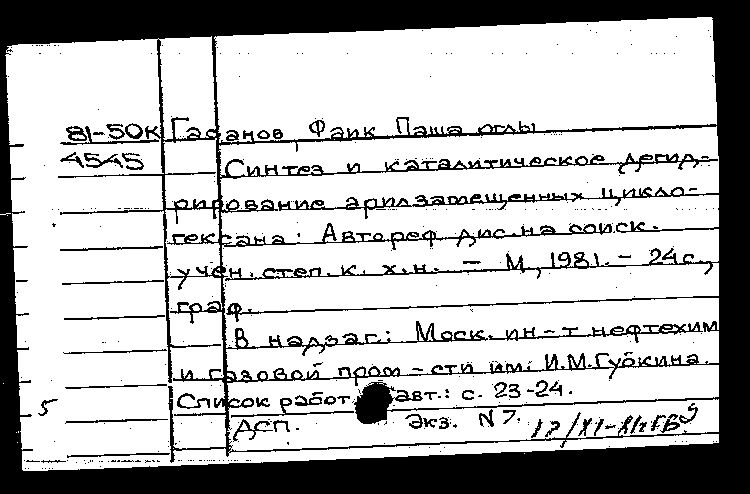 81-50К Гасанов Фаик Паша оглы
4545 Синтез и каталитическое дегид-
рирование арилзамещенных цикло-
гексана: Автореф. дис. на соиск.
учен. степ. к. х.н. - М., 1981. - 24с.,
граф.
В надзаг.: Моск. ин-т нефтехим
и газовой пром-сти им. И.М.Губкина.
5 Список работ авт.: с. 23-24.
ДСП. Экз. N 7.